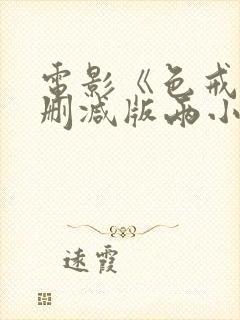 電影《色戒
刪減版兩小
遠霞